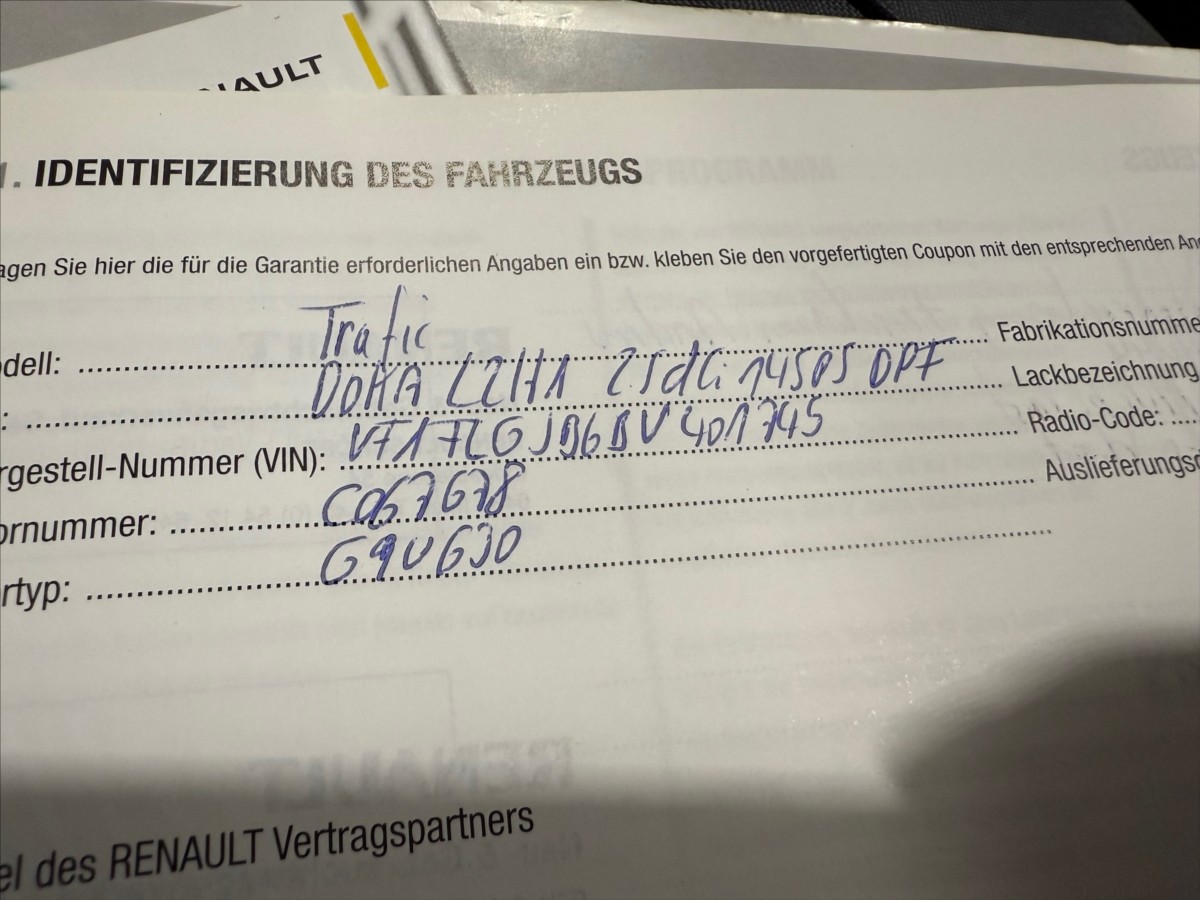 RENAULT
1. IDENTIFIZIERUNG DES FAHRZEUGS
agen Sie hier die für die Garantie erforderlichen Angaben ein bzw. kleben Sie den vorgefertigten Coupon mit den entsprechenden An
dell: Trafic Fabrikationsnumme
: DOKA L2H1 2.5dCi 145PS DPF Lackbezeichnung
rgestell-Nummer (VIN): VF17LGJD6BV401745 Radio-Code: ....
ornummer: C067678 Auslieferungsd
rtyp: G9U630
el des RENAULT Vertragspartners